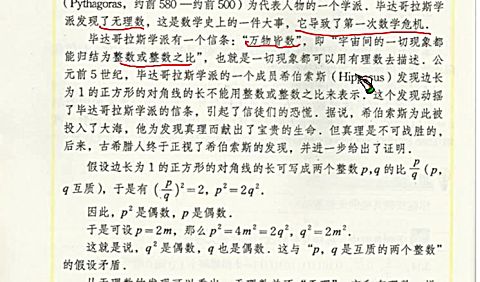 (Pythagoras, 约前580—约前500)为代表人物的一个学派.毕达哥拉斯学
派发现了无理数，这是数学史上的一件大事，它导致了第一次数学危机.
毕达哥拉斯学派有一个信条：“万物皆数”，即“宇宙间的一切现象都
能归结为整数或整数之比”，也就是一切现象都可以用有理数去描述.公
元前5世纪，毕达哥拉斯学派的一个成员希伯索斯(Hippasus)发现边长
为1的正方形的对角线的长不能用整数或整数之比来表示.这个发现动摇
了毕达哥拉斯学派的信条，引起了信徒们的恐慌.据说，希伯索斯为此被
投入了大海，他为发现真理而献出了宝贵的生命.但真理是不可战胜的，
后来，古希腊人终于正视了希伯索斯的发现，并进一步给出了证明.
假设边长为1的正方形的对角线的长可写成两个整数p,q的比p/q(p,
q互质)，于是有(p/q)²=2，p²=2q².
因此，p²是偶数，p是偶数.
于是可设p=2m，那么p²=4m²=2q²，q²=2m².
这就是说，q²是偶数，q也是偶数.这与“p，q是互质的两个整数”
的假设矛盾.